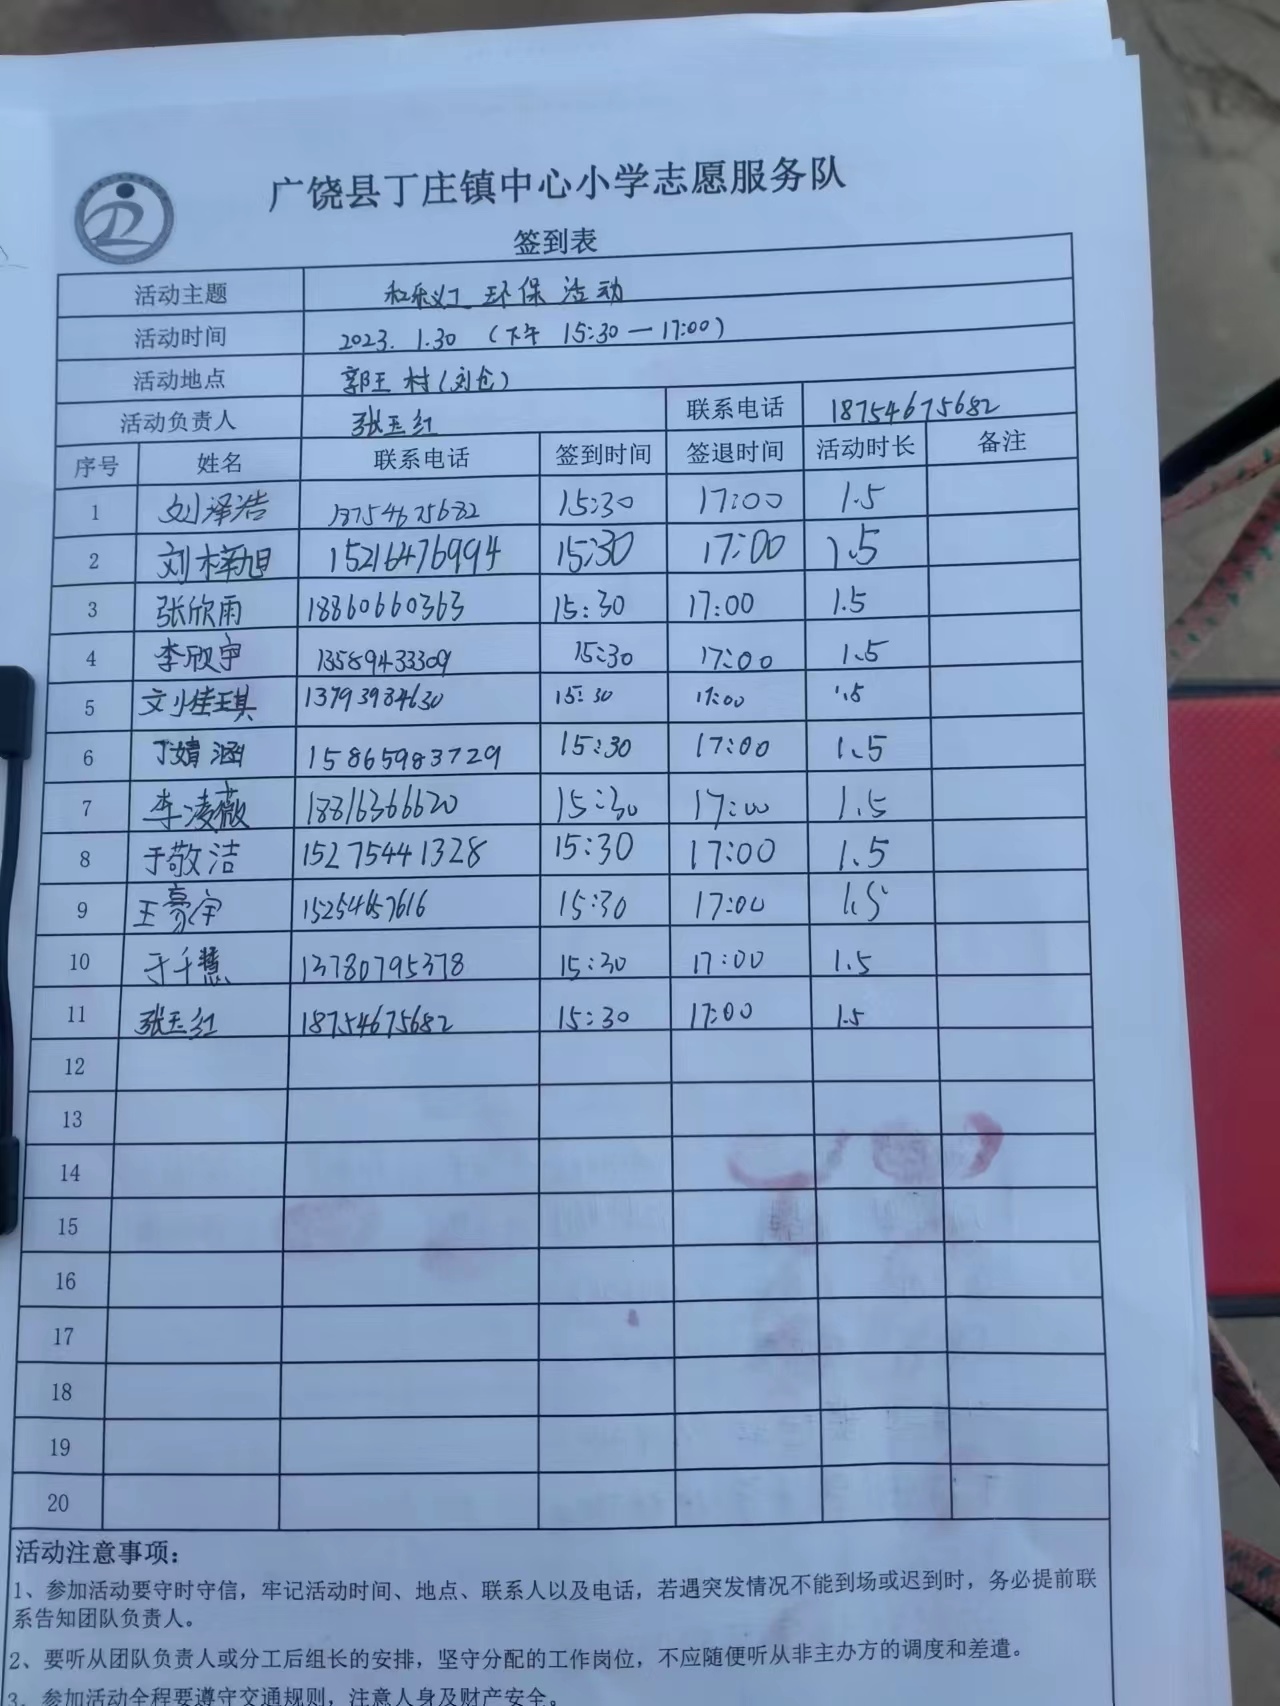 广饶县丁庄镇中心小学志愿服务队
签到表
活动主题 和乐义工 环保活动
活动时间 2023.1.30 (下午 15:30—17:00)
活动地点 郭王村(刘仓)
活动负责人 张玉红 联系电话 18754675682
序号 姓名 联系电话 签到时间 签退时间 活动时长 备注
1 刘泽浩 18754675682 15:30 17:00 1.5
2 刘梓旭 15216476994 15:30 17:00 1.5
3 张欣雨 18860660363 15:30 17:00 1.5
4 李欣宇 13589433309 15:30 17:00 1.5
5 刘佳琪 13793984630 15:30 17:00 1.5
6 丁婧涵 15865983729 15:30 17:00 1.5
7 李凌薇 18816366620 15:30 17:00 1.5
8 于敬洁 15275441328 15:30 17:00 1.5
9 王豪宇 15254657616 15:30 17:00 1.5
10 于千慧 13780795378 15:30 17:00 1.5
11 张玉红 18754675682 15:30 17:00 1.5
12
13
14
15
16
17
18
19
20
活动注意事项：
1、参加活动要守时守信，牢记活动时间、地点、联系人以及电话，若遇突发情况不能到场或迟到时，务必提前联
系告知团队负责人。
2、要听从团队负责人或分工后组长的安排，坚守分配的工作岗位，不应随便听从非主办方的调度和差遣。
3、参加活动全程要遵守交通规则，注意人身及财产安全。